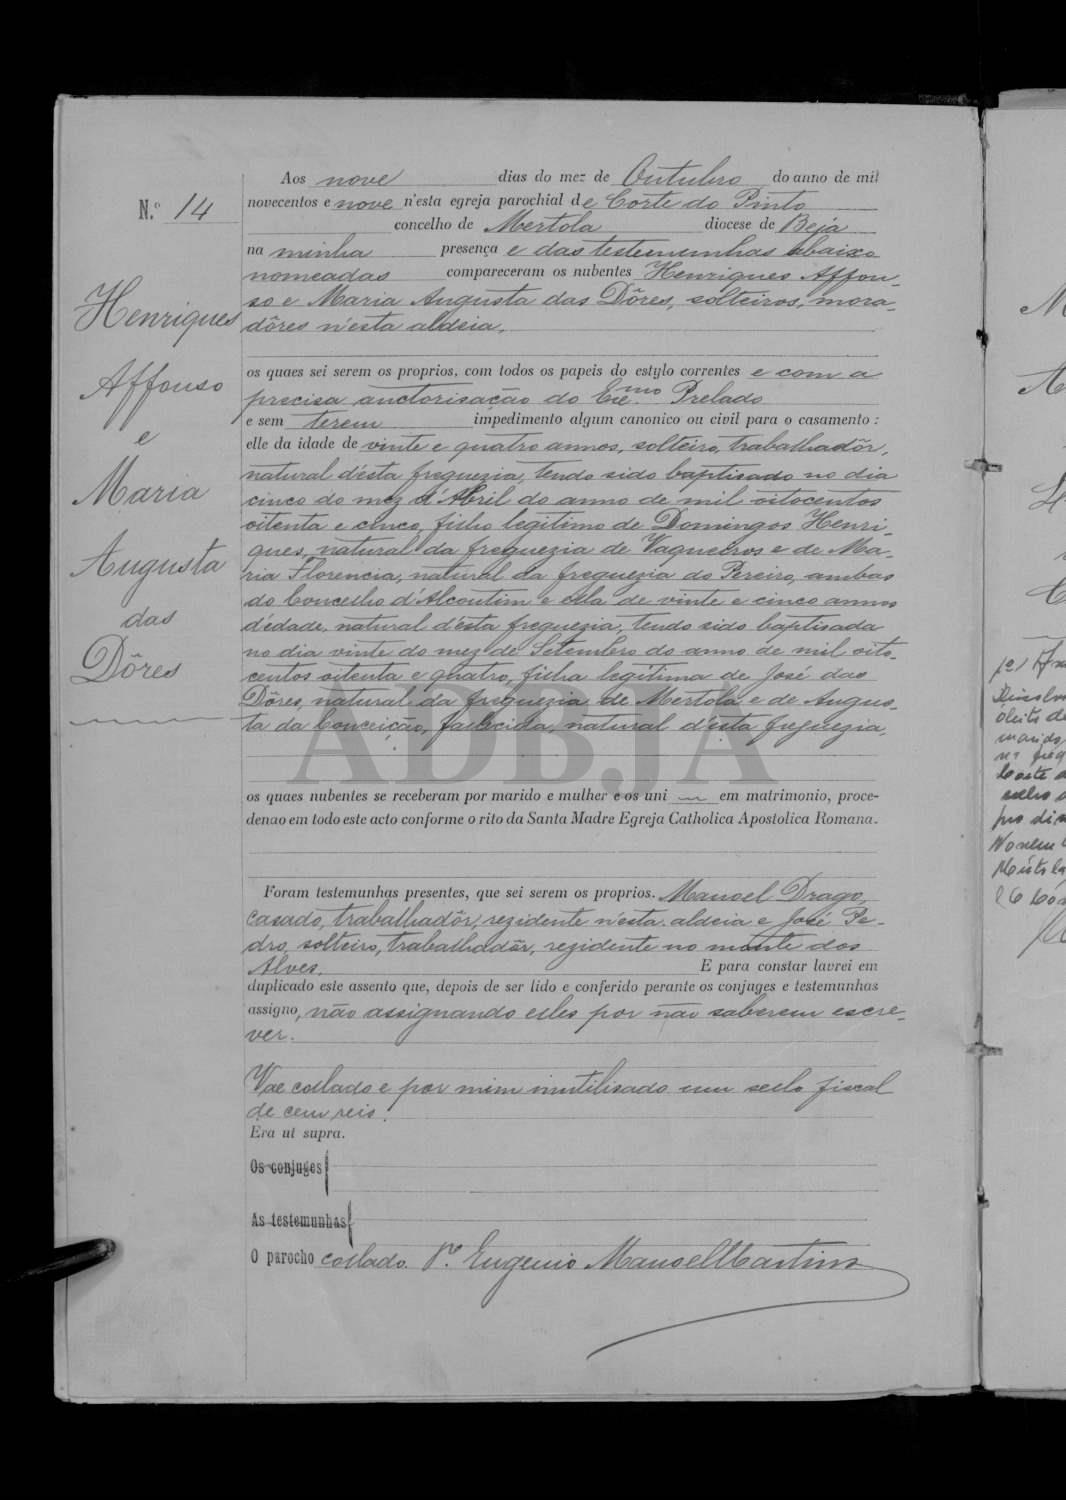 N.º 14
Henriques
Affonso
e
Maria
Augusta
das
Dôres
Aos nove dias do mez de Outubro do anno de mil
novecentos e nove n'esta egreja parochial de Corte do Pinto
concelho de Mertola diocese de Beja
na minha presença e das testemunhas abaixo
nomeadas compareceram os nubentes Henriques Affon-
so e Maria Augusta das Dôres, solteiros, mora-
dôres n'esta aldeia,
os quaes sei serem os proprios, com todos os papeis do estylo correntes e com a
precisa auctorisação do Exc.mo Prelado
e sem terem impedimento algum canonico ou civil para o casamento :
elle da idade de vinte e quatro annos, solteiro, trabalhadôr,
natural d'esta freguezia, tendo sido baptisado no dia
cinco do mez d'Abril do anno de mil oitocentos
oitenta e cinco, filho legitimo de Domingos Henri-
ques, natural da freguezia de Vaqueiros e de Ma-
ria Florencia, natural da freguezia do Pereiro, ambas
do Concelho d'Alcoutim e ella de vinte e cinco annos
d'edade, natural d'esta freguezia, tendo sido baptisada
no dia vinte do mez de Setembro do anno de mil oito-
centos oitenta e quatro, filha legítima de José das
Dôres, natural da freguezia de Mertola e de Augus-
ta da Conceição, fallecida, natural d'esta freguezia,
ADBJA
os quaes nubentes se receberam por marido e mulher e os uni em matrimonio, proce-
dendo em todo este acto conforme o rito da Santa Madre Egreja Catholica Apostolica Romana.
Foram testemunhas presentes, que sei serem os proprios. Manoel Drago,
casado, trabalhadôr, rezidente n'esta aldeia e José Pe-
dro, solteiro, trabalhadôr, rezidente no monte dos
Alves. E para constar lavrei em
duplicado este assento que, depois de ser lido e conferido perante os conjuges e testemunhas
assigno, não assignando elles por não saberem escre-
ver.
Vae collado e por mim inutilisado um sello fiscal
de cem reis.
Era ut supra.
Os conjuges
As testemunhas
O parocho collado. P.e Eugenio Manoel Martins